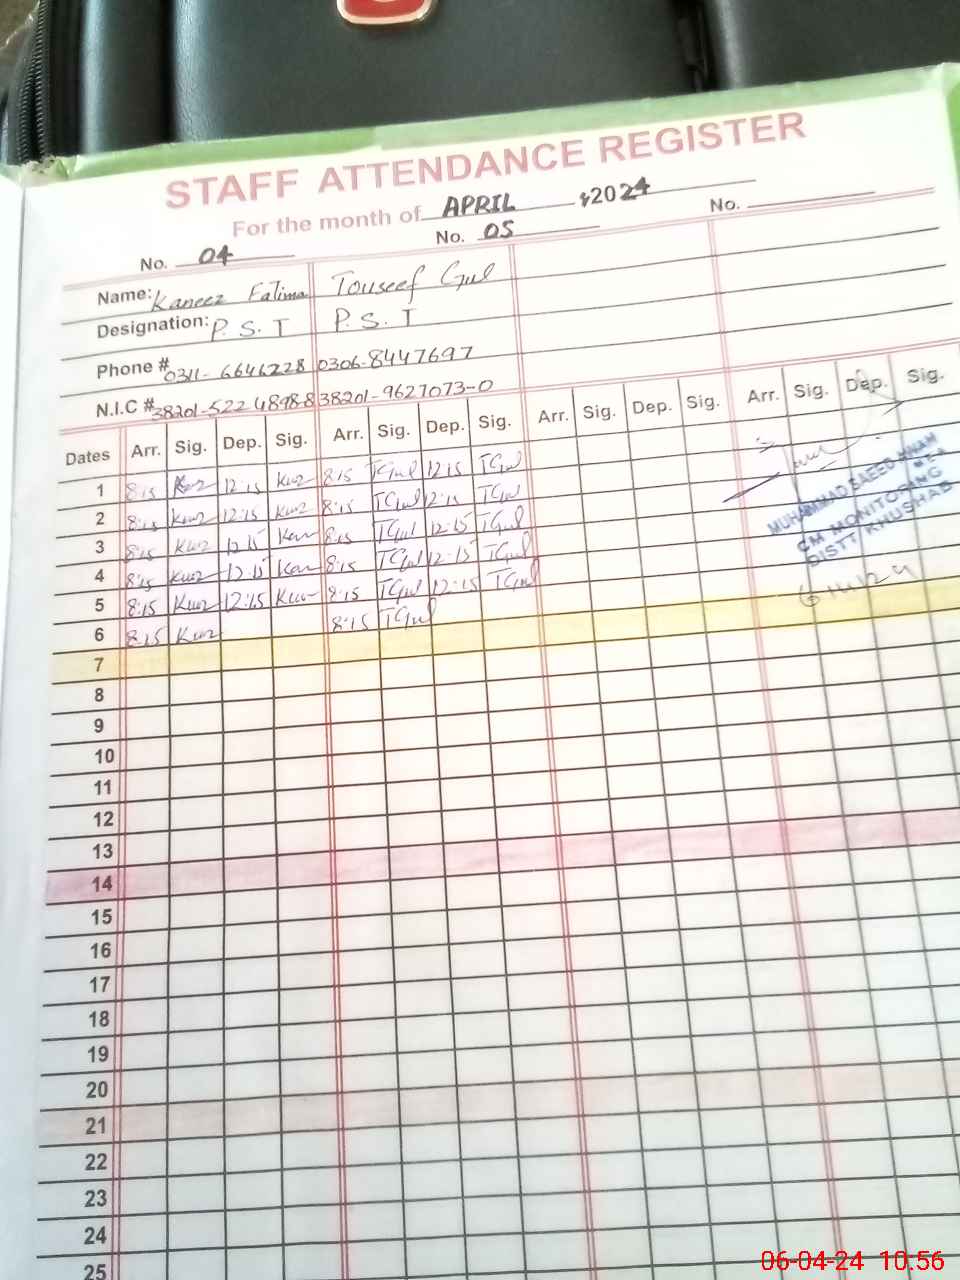 STAFF ATTENDANCE REGISTER
For the month of APRIL 2024
No. 04 No. 05 No.
Name: Kaneez Fatima Touseef Gul
Designation: P.S.T P.S.T
Phone # 0311-6646228 0306-8447697
N.I.C # 38201-5224898-8 38201-9627073-0
Dates Arr. Sig. Dep. Sig. Arr. Sig. Dep. Sig. Arr. Sig. Dep. Sig. Arr. Sig. Dep. Sig.
1 8:15 12:15 8:15 TGul 12:15 TGul
2 8:15 12:15 8:15 TGul 12:15 TGul
3 8:15 12:15 8:15 TGul 12:15 TGul
4 8:15 12:15 8:15 TGul 12:15 TGul
5 8:15 12:15 8:15 TGul 12:15 TGul
6 8:15 8:15 TGul
7
8
9
10
11
12
13
14
15
16
17
18
19
20
21
22
23
24
25
MUHAMMAD SAEED
CM MONITORING
DISTT KHUSHAB
06-04-24 10:56